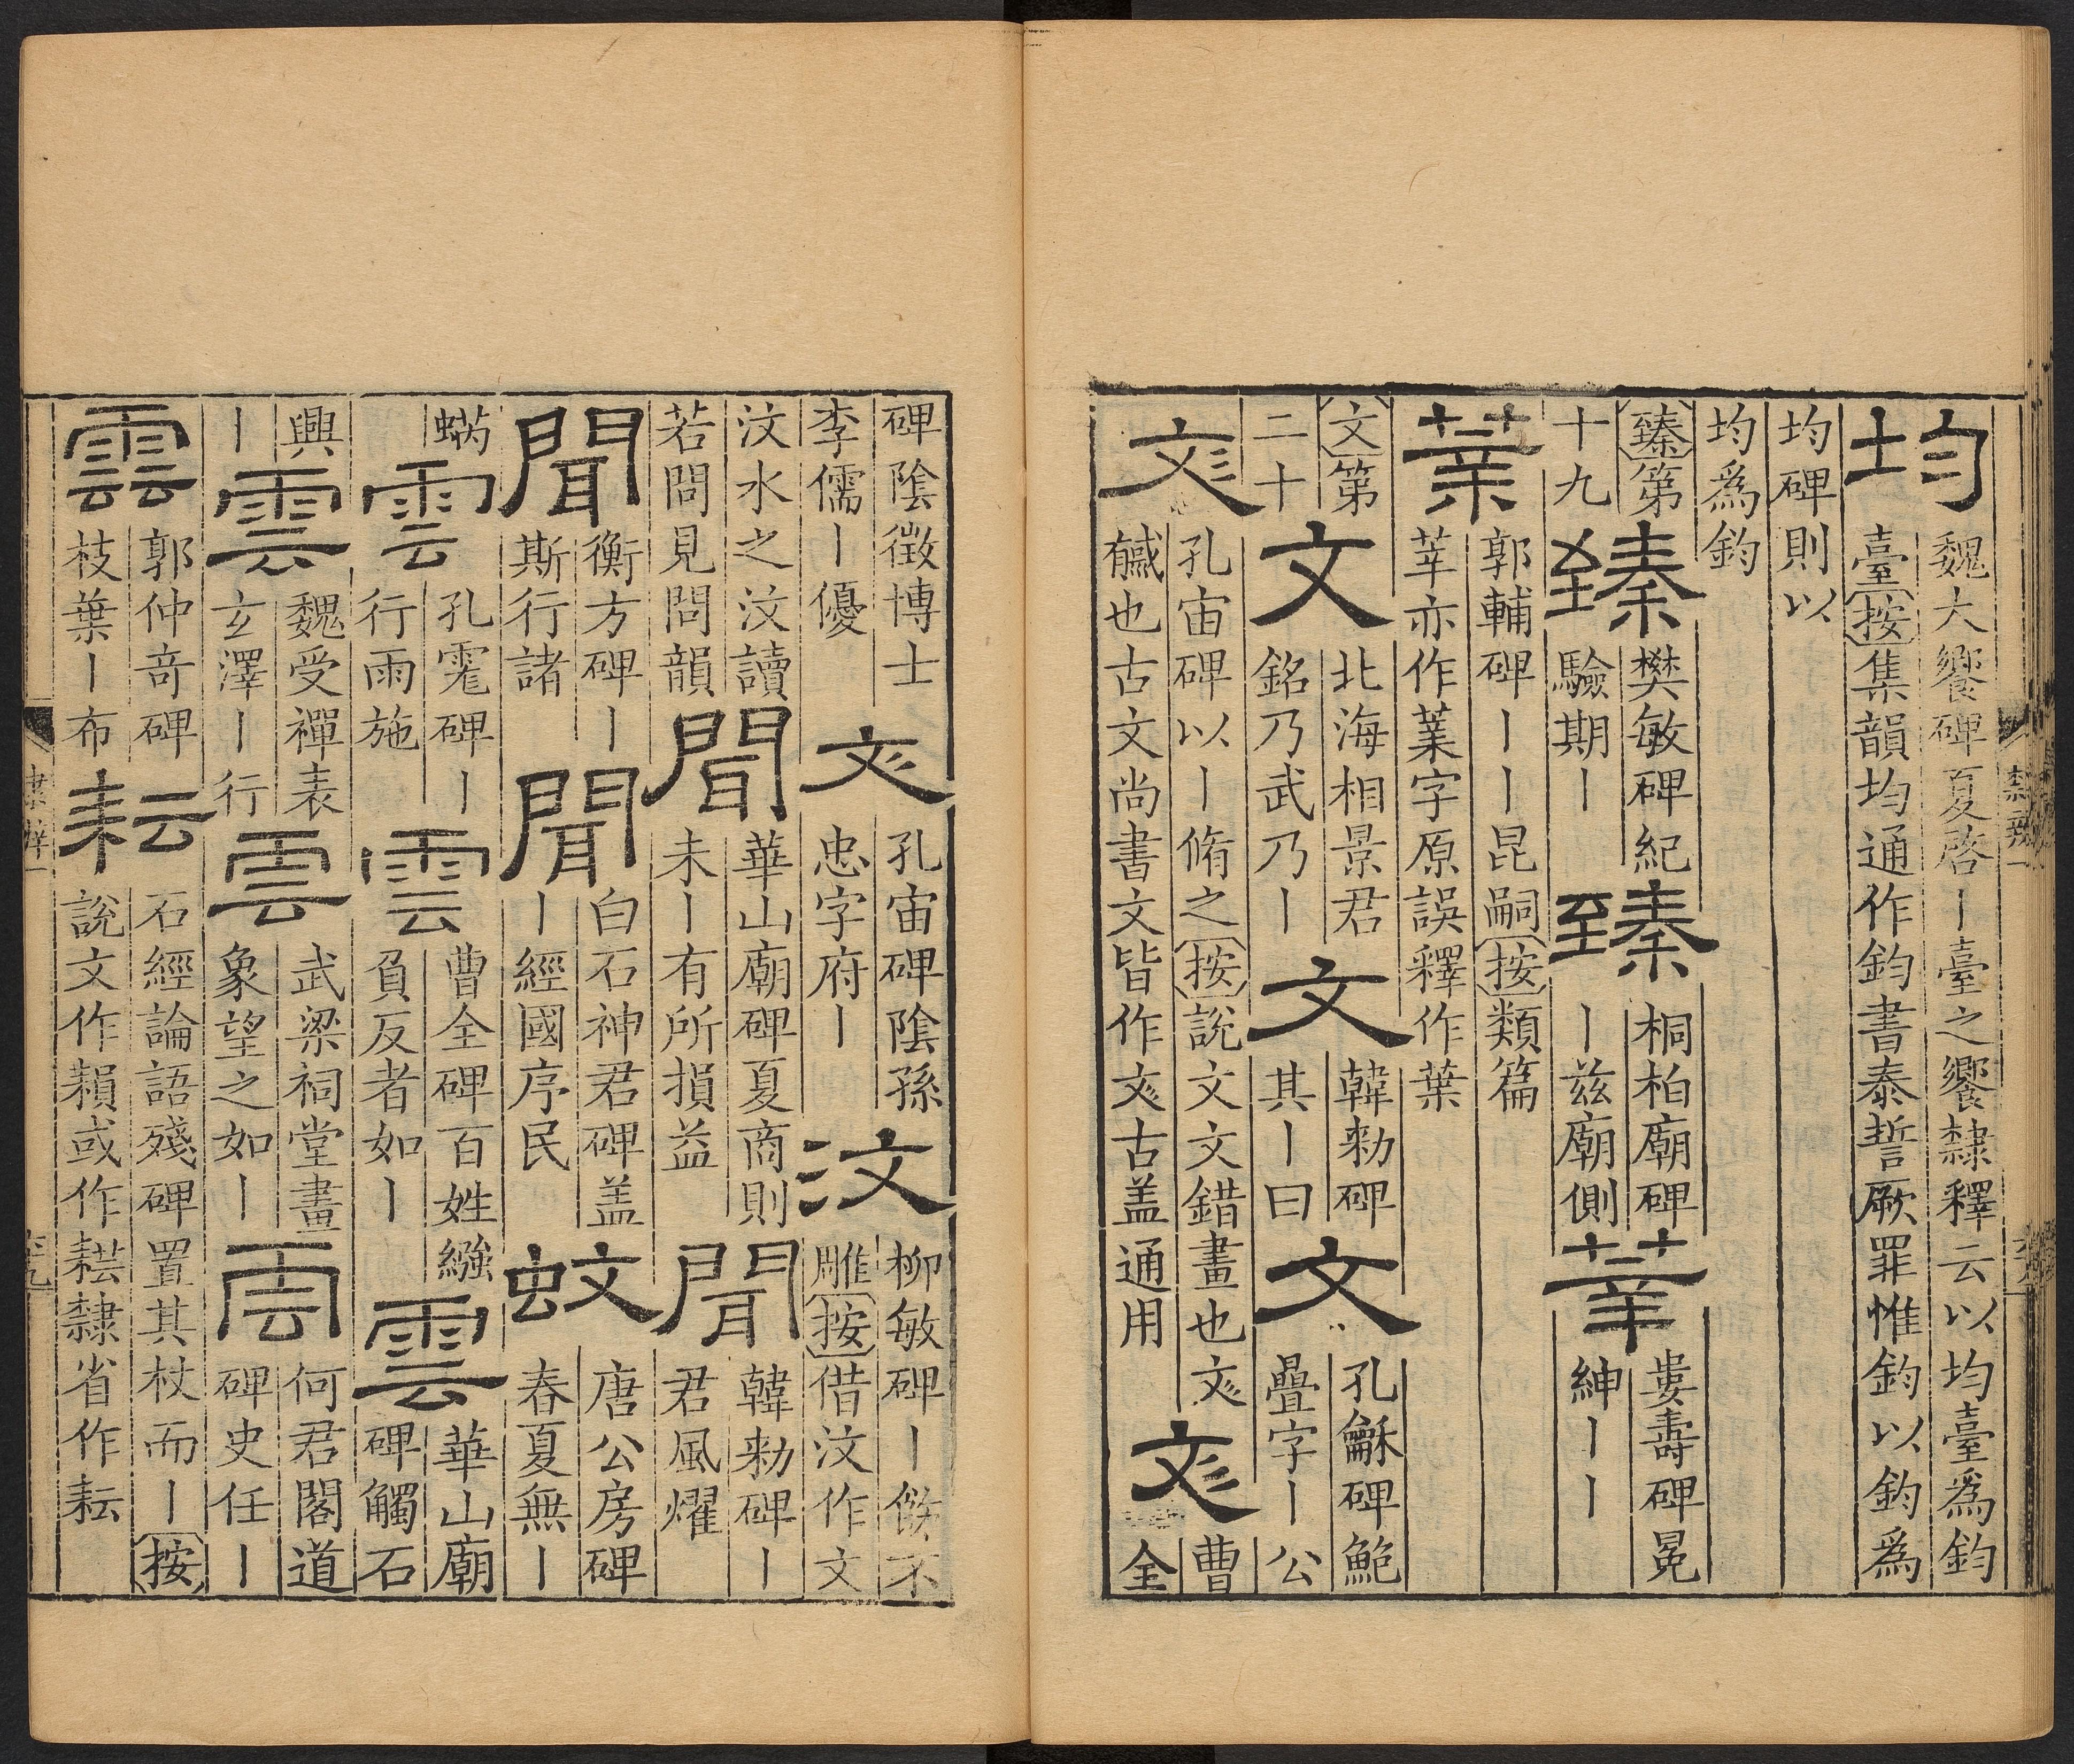 均
魏大饗碑夏啓丨臺之饗隸釋云以均臺爲鈞
臺按集韻均通作鈞書泰誓厥罪惟鈞以鈞爲
均碑則以
均爲鈞
臻第
十九
臻
樊敏碑紀
驗期丨
臻
桐柏廟碑
丨兹廟側
莘
婁壽碑冕
紳丨丨
葉
郭輔碑丨丨昆嗣按類篇
莘亦作葉字原誤釋作葉
文第
二十
文
北海相景君
銘乃武乃丨
文
韓勑碑
其丨曰
文
孔龢碑鮑
疊字丨公
彣
孔宙碑以丨脩之按說文文錯畫也彣
也古文尚書文皆作彣古盖通用
彣
曹
全
碑陰徵博士
李儒丨優
彣
孔宙碑陰孫
忠字府丨
汶
柳敏碑丨不
雕按借汶作文
汶水之汶讀
若問見問韻
聞
華山廟碑夏商則
未丨有所損益
聞
韓勑碑丨
君風燿
聞
衡方碑丨
斯行諸
聞
白石神君碑盖
丨經國序民
蚊
唐公房碑
春夏無丨
蜹
雲
孔霔碑丨
行雨施
雲
曹全碑百姓繈
負反者如丨
雲
華山廟
碑觸石
興
丨
雲
魏受禪表
玄澤丨行
雲
武梁祠堂畫
象望之如丨
雲
何君閣道
碑史任丨
雲
郭仲奇碑
枝葉丨布
耘
石經論語殘碑置其杖而丨按
說文作䅶或作䎣隸省作耘